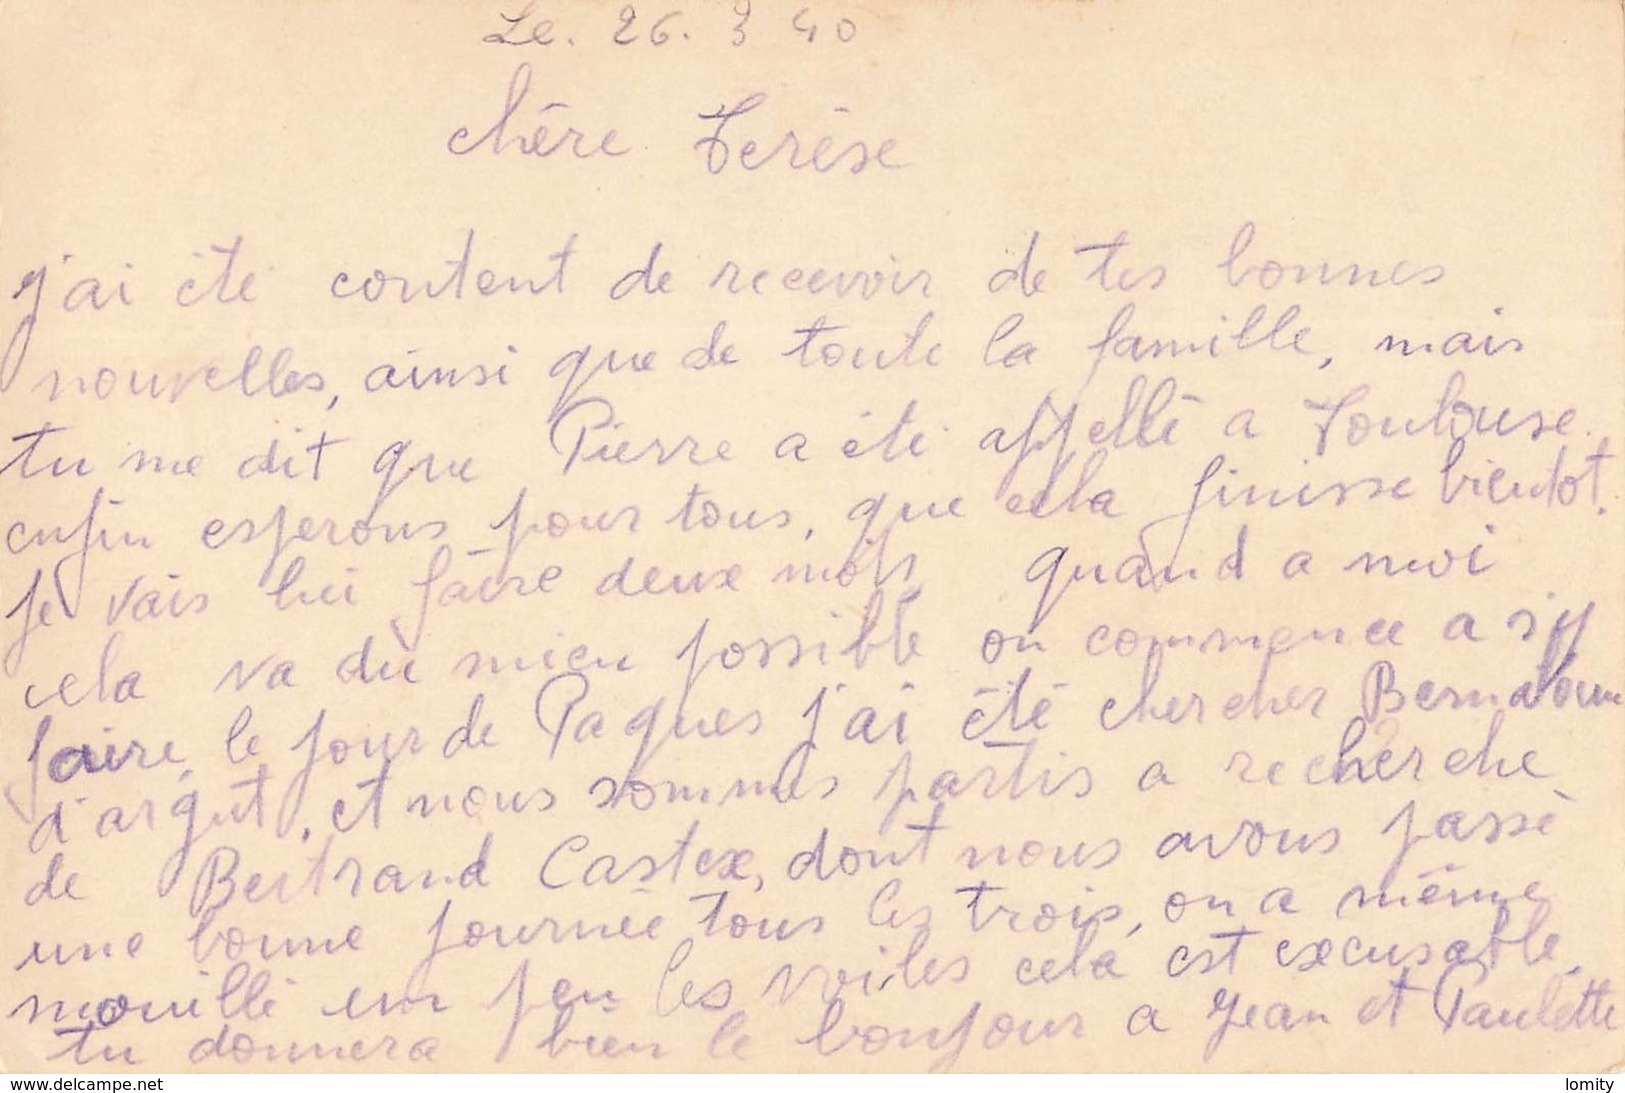 Le. 26. 3 40
chère Terèse
j'ai été content de recevoir de tes bonnes
nouvelles, ainsi que de toute la famille, mais
tu me dit que Pierre a été appellé a Toulouse.
enfin esperons pour tous, que cela finisse bientot.
je vais lui faire deux mots quand a moi
cela va du mieu possible on commence a s'y
faire, le jour de Paques j'ai été chercher
d'argut, et nous sommes partis a recherche
de Bertrand Castex, dont nous avons passé
une bonne journée tous les trois, on a même
mouillé un peu les voiles cela est excusable,
tu donnera bien le bonjour a Jean et Paulette
www.delcampe.net
lomity